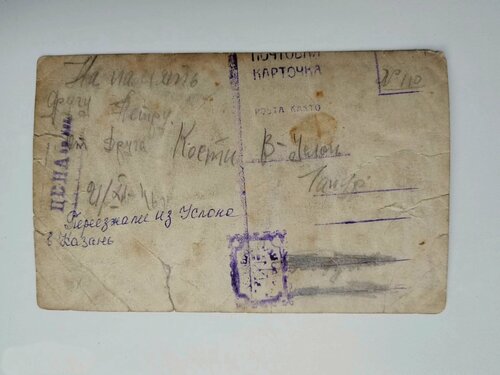 На память
другу Петру
от друга Кости В-Услон
21/XI-
Переезжали из Услона
в Казань
ЦЕНА
ПОЧТОВАЯ
КАРТОЧКА
POŞTA KARTO
№ 110